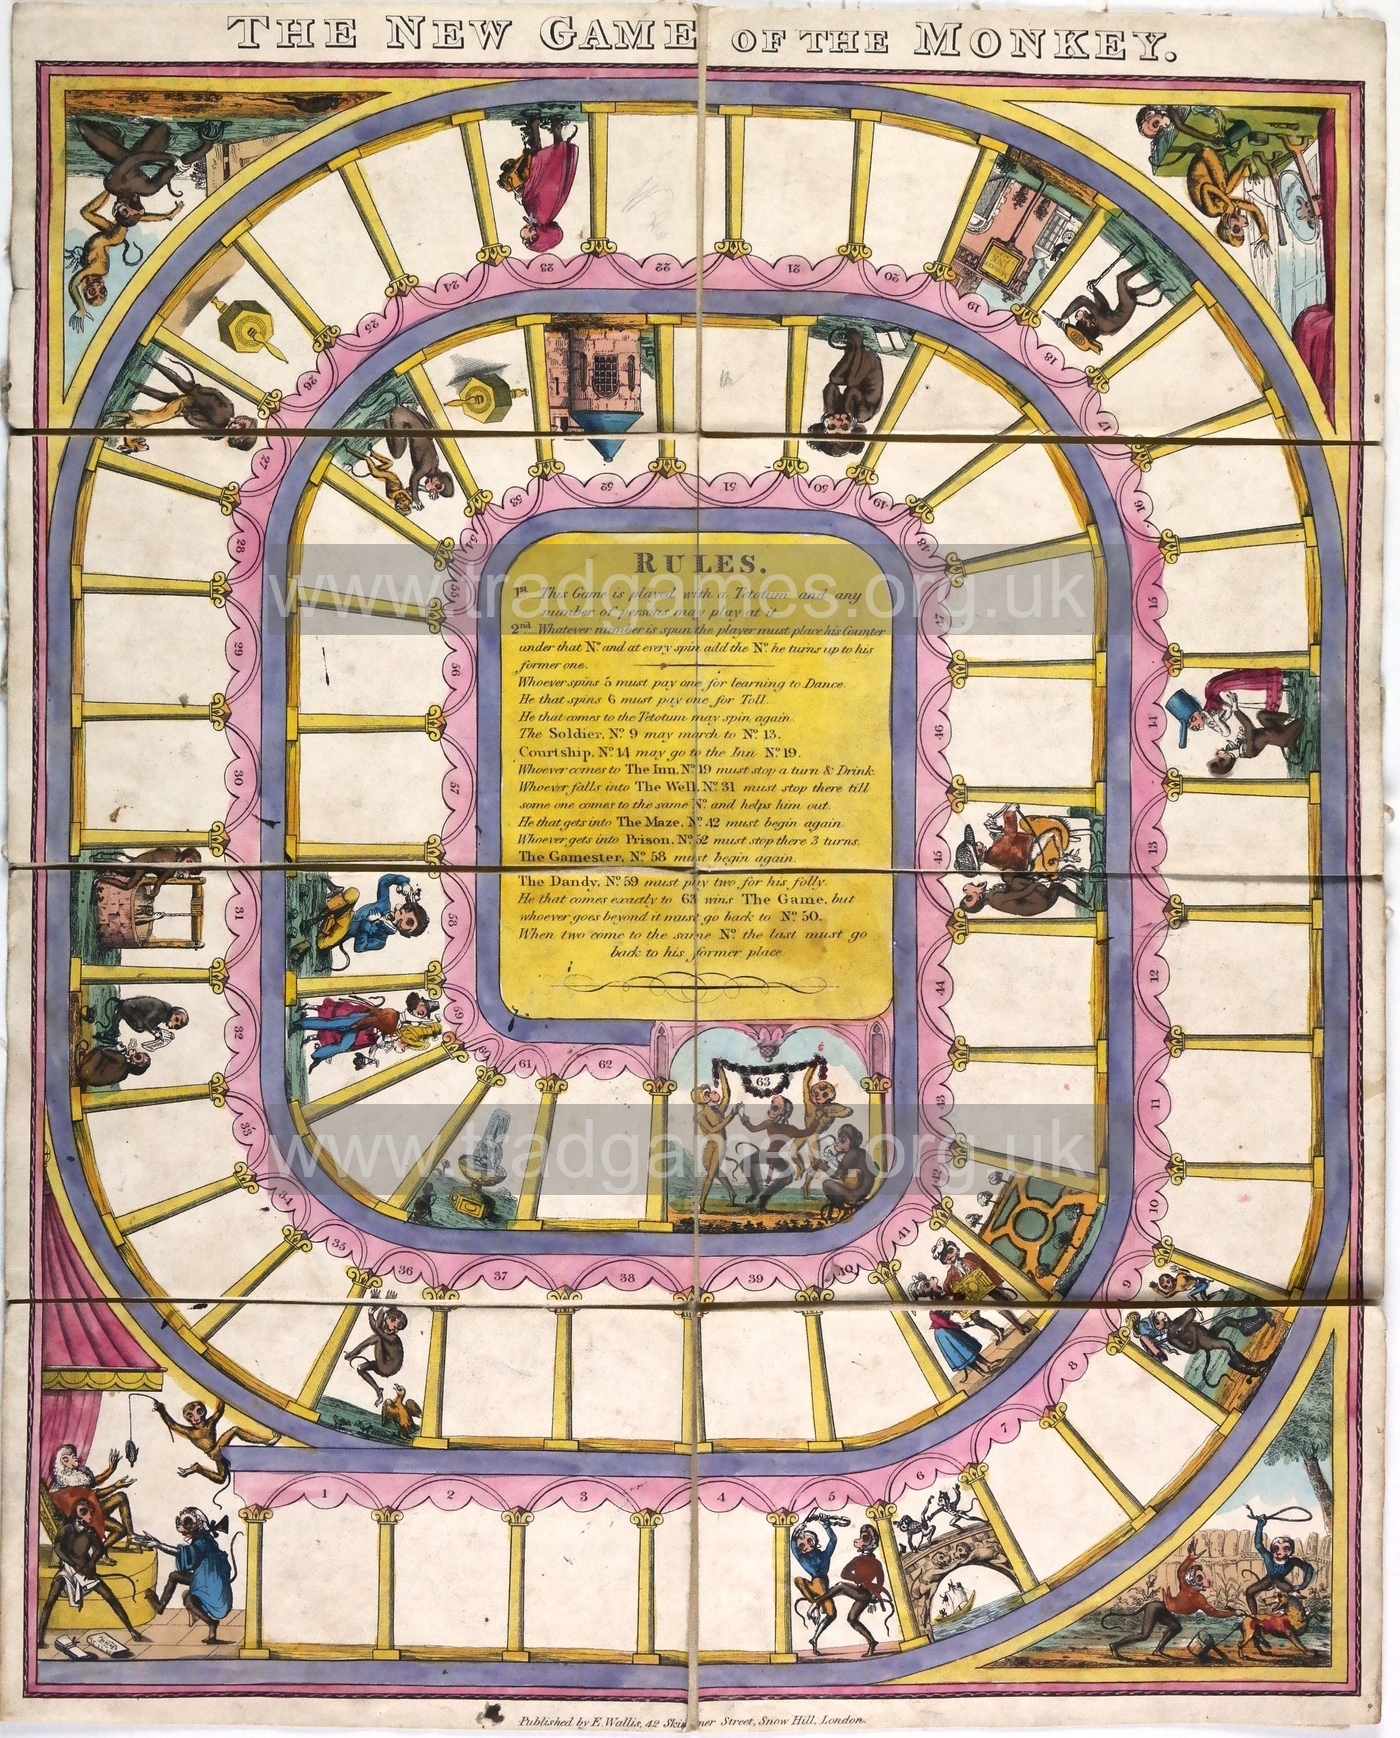 THE NEW GAME OF THE MONKEY.
RULES.
1st This Game is played with a Tetotum and any
number of persons may play at it
2nd Whatever number is spun the player must place his Counter
under that No. and at every spin add the No. he turns up to his
former one.
Whoever spins 5 must pay one for learning to Dance.
He that spins 6 must pay one for Toll.
He that comes to the Tetotum may spin again.
The Soldier, No. 9 may march to No. 13.
Courtship, No. 14 may go to the Inn No. 19.
Whoever comes to The Inn, No. 19 must stop a turn & Drink
Whoever falls into The Well, No. 31 must stop there till
some one comes to the same No. and helps him out.
He that gets into The Maze, No. 42 must begin again.
Whoever gets into Prison, No. 52 must stop there 3 turns.
The Gamester, No. 58 must begin again.
The Dandy, No. 59 must pay two for his folly.
He that comes exactly to 63 wins The Game, but
whoever goes beyond it must go back to No. 50.
When two come to the same No. the last must go
back to his former place
1
2
3
4
5
6
7
8
9
10
11
12
13
14
15
16
17
18
19
20
21
22
23
24
25
26
27
28
29
30
31
32
33
34
35
36
37
38
39
40
41
42
43
44
45
46
47
48
49
50
51
52
53
54
55
56
57
58
59
60
61
62
63
www.tradgames.org.uk
www.tradgames.org.uk
Published by E. Wallis, 42 Skinner Street, Snow Hill, London.